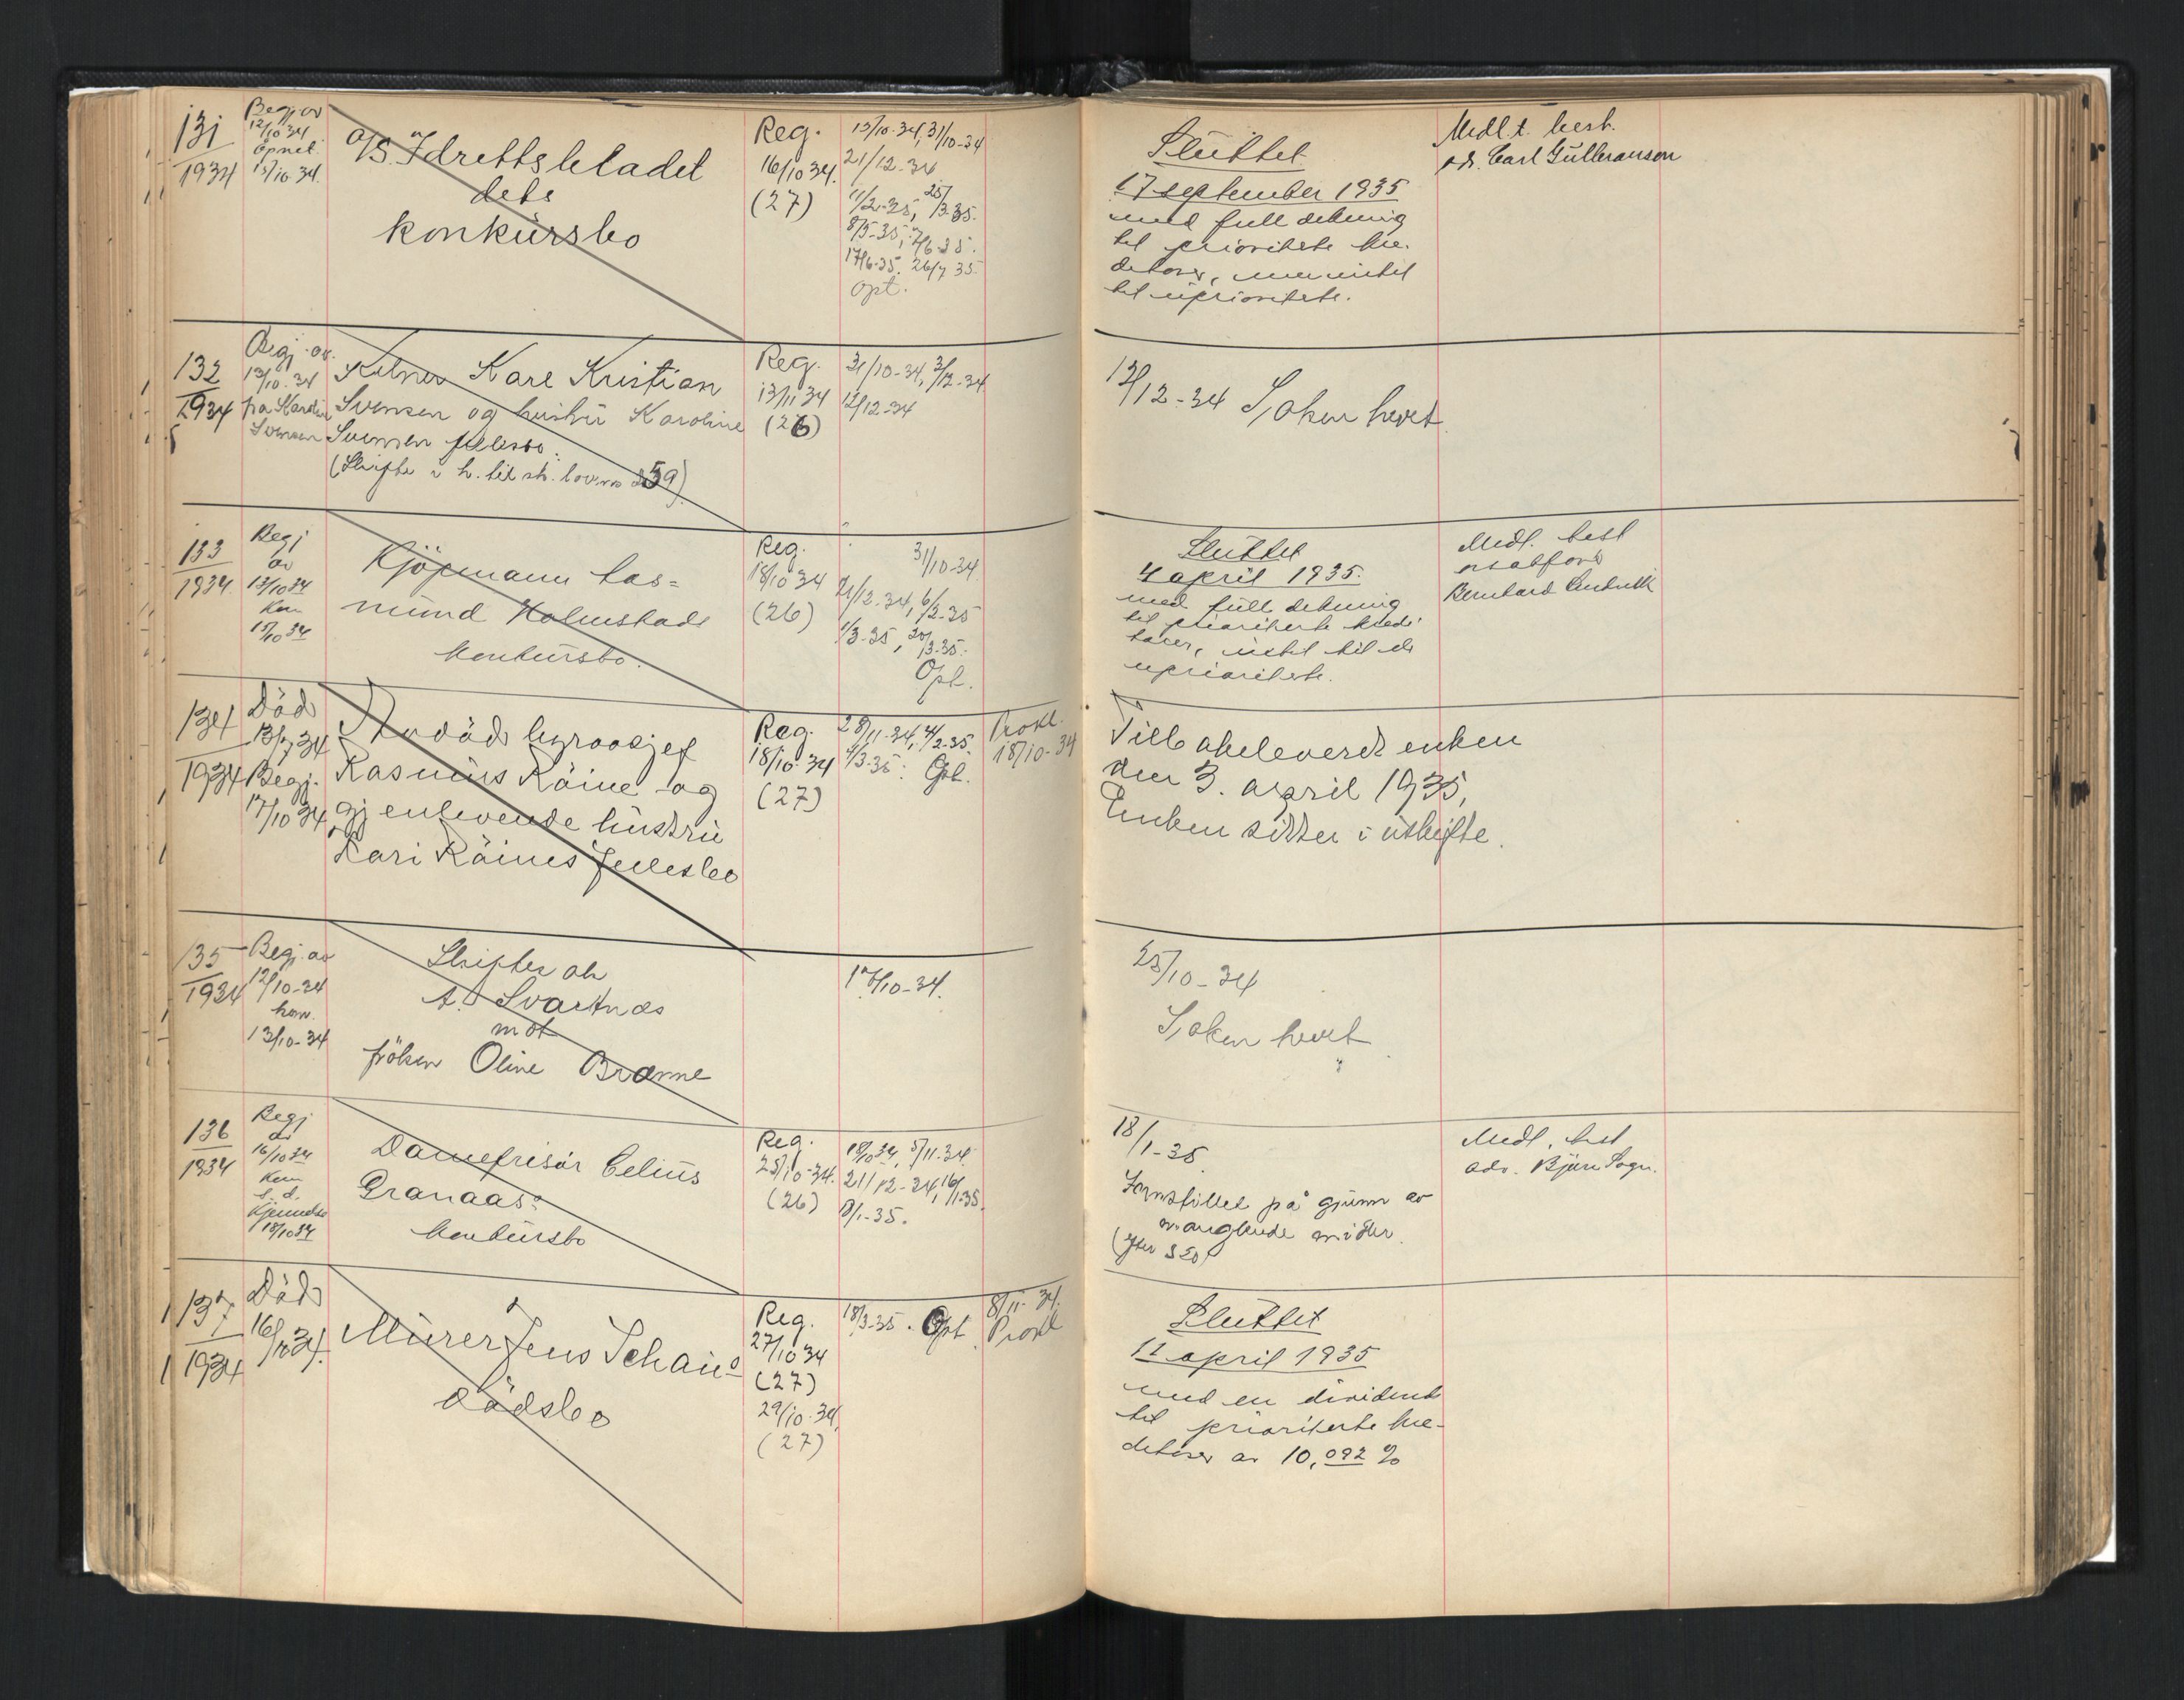 131
1934
Begj. av
12/10 34
åpnet
15/10 34.
A/S. Idrettsbladet
dets
konkursbo
Reg.
16/10 34.
(27)
15/10-34, 31/10-34
21/12-34
11/2-35, 25/3-35.
8/5-35, 7/6-35.
17/6-35. 26/7 35.
Opt.
Sluttet
17 september 1935
med full dekning
til prioriterte kre-
ditorer, men intet
til uprioriterte.
Medl. t. best.
adv. Carl Gulbranson
132
1934
Begj. av.
13/10-34
fra Karoline
Svensen
Kelner Karl Kristian
Svensen og hustru Karoline
Svensen fellesbo.
(Skifte i h. til sk. lovens § 59)
Reg.
13/11 34
(26)
31/10-34, 3/12-34
12/12-34
12/12-34 Saken hevet.
133
1934
Begj
av
13/10 34
Kon
15/10 34
Kjöpmann
Holmstads
konkursbo.
Reg.
18/10 34
(26)
31/10-34.
21/12-34, 6/2-35
1/3-35, 20/3-35.
Opt.
Sluttet
4 april 1935.
med full dekning
til prioriterte kredi-
torer, intet til de
uprioriterte.
Medl. best
Bernhard
134
1934
Död
13/7 34
Begj.
17/10 34
Avdöd byråsjef
Rasmus Råine og
gjenlevende hustru
Kari Råines fellesbo
Reg.
18/10-34
(27)
28/11-34, 4/2-35.
4/3-35. Opt.
Prokl.
18/10-34
Tilbakeleverdt enken
den 3. april 1935,
Enken sitter i uskifte.
135
1934
Begj. av
12/10-34
kom.
13/10-34
Skifter ak
A. Svartnes
mot
fröken Oline Brænne
17/10-34.
25/10-34
Saken hevet
136
1934
Begj
av
16/10 34
Kon
s. d.
Kjennelse
18/10 34
Damefrisör Celius
Granaas:
konkursbo
Reg.
25/10-34.
(26)
18/10 34, 5/11-34.
21/12-34, 16/1-35.
18/1-35.
18/1-35.
Innstillet på grunn av
manglende midler.
(efter § 50)
Medl. best
adv. Bjørn Sogn.
137
1934
Död
16/10 34.
Murer Jens Schaus
dödsbo
Reg.
27/10 34
(27)
29/10-34
(27)
18/3-35. Opt.
8/11-34.
Prokl
Sluttet
11 april 1935
med en dividende
til prioriterte kre-
ditorer av 10,092 %